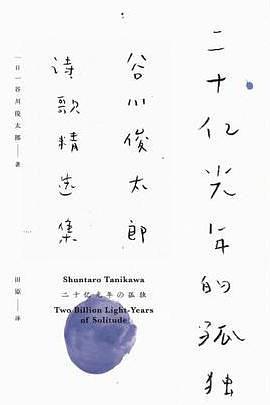 二十亿光年的孤独
谷川俊太郎
诗歌精选集
[日]谷川俊太郎——著
Shuntaro Tanikawa
二十亿光年の孤独
Two Billion Light-Years
of Solitude
田原——译